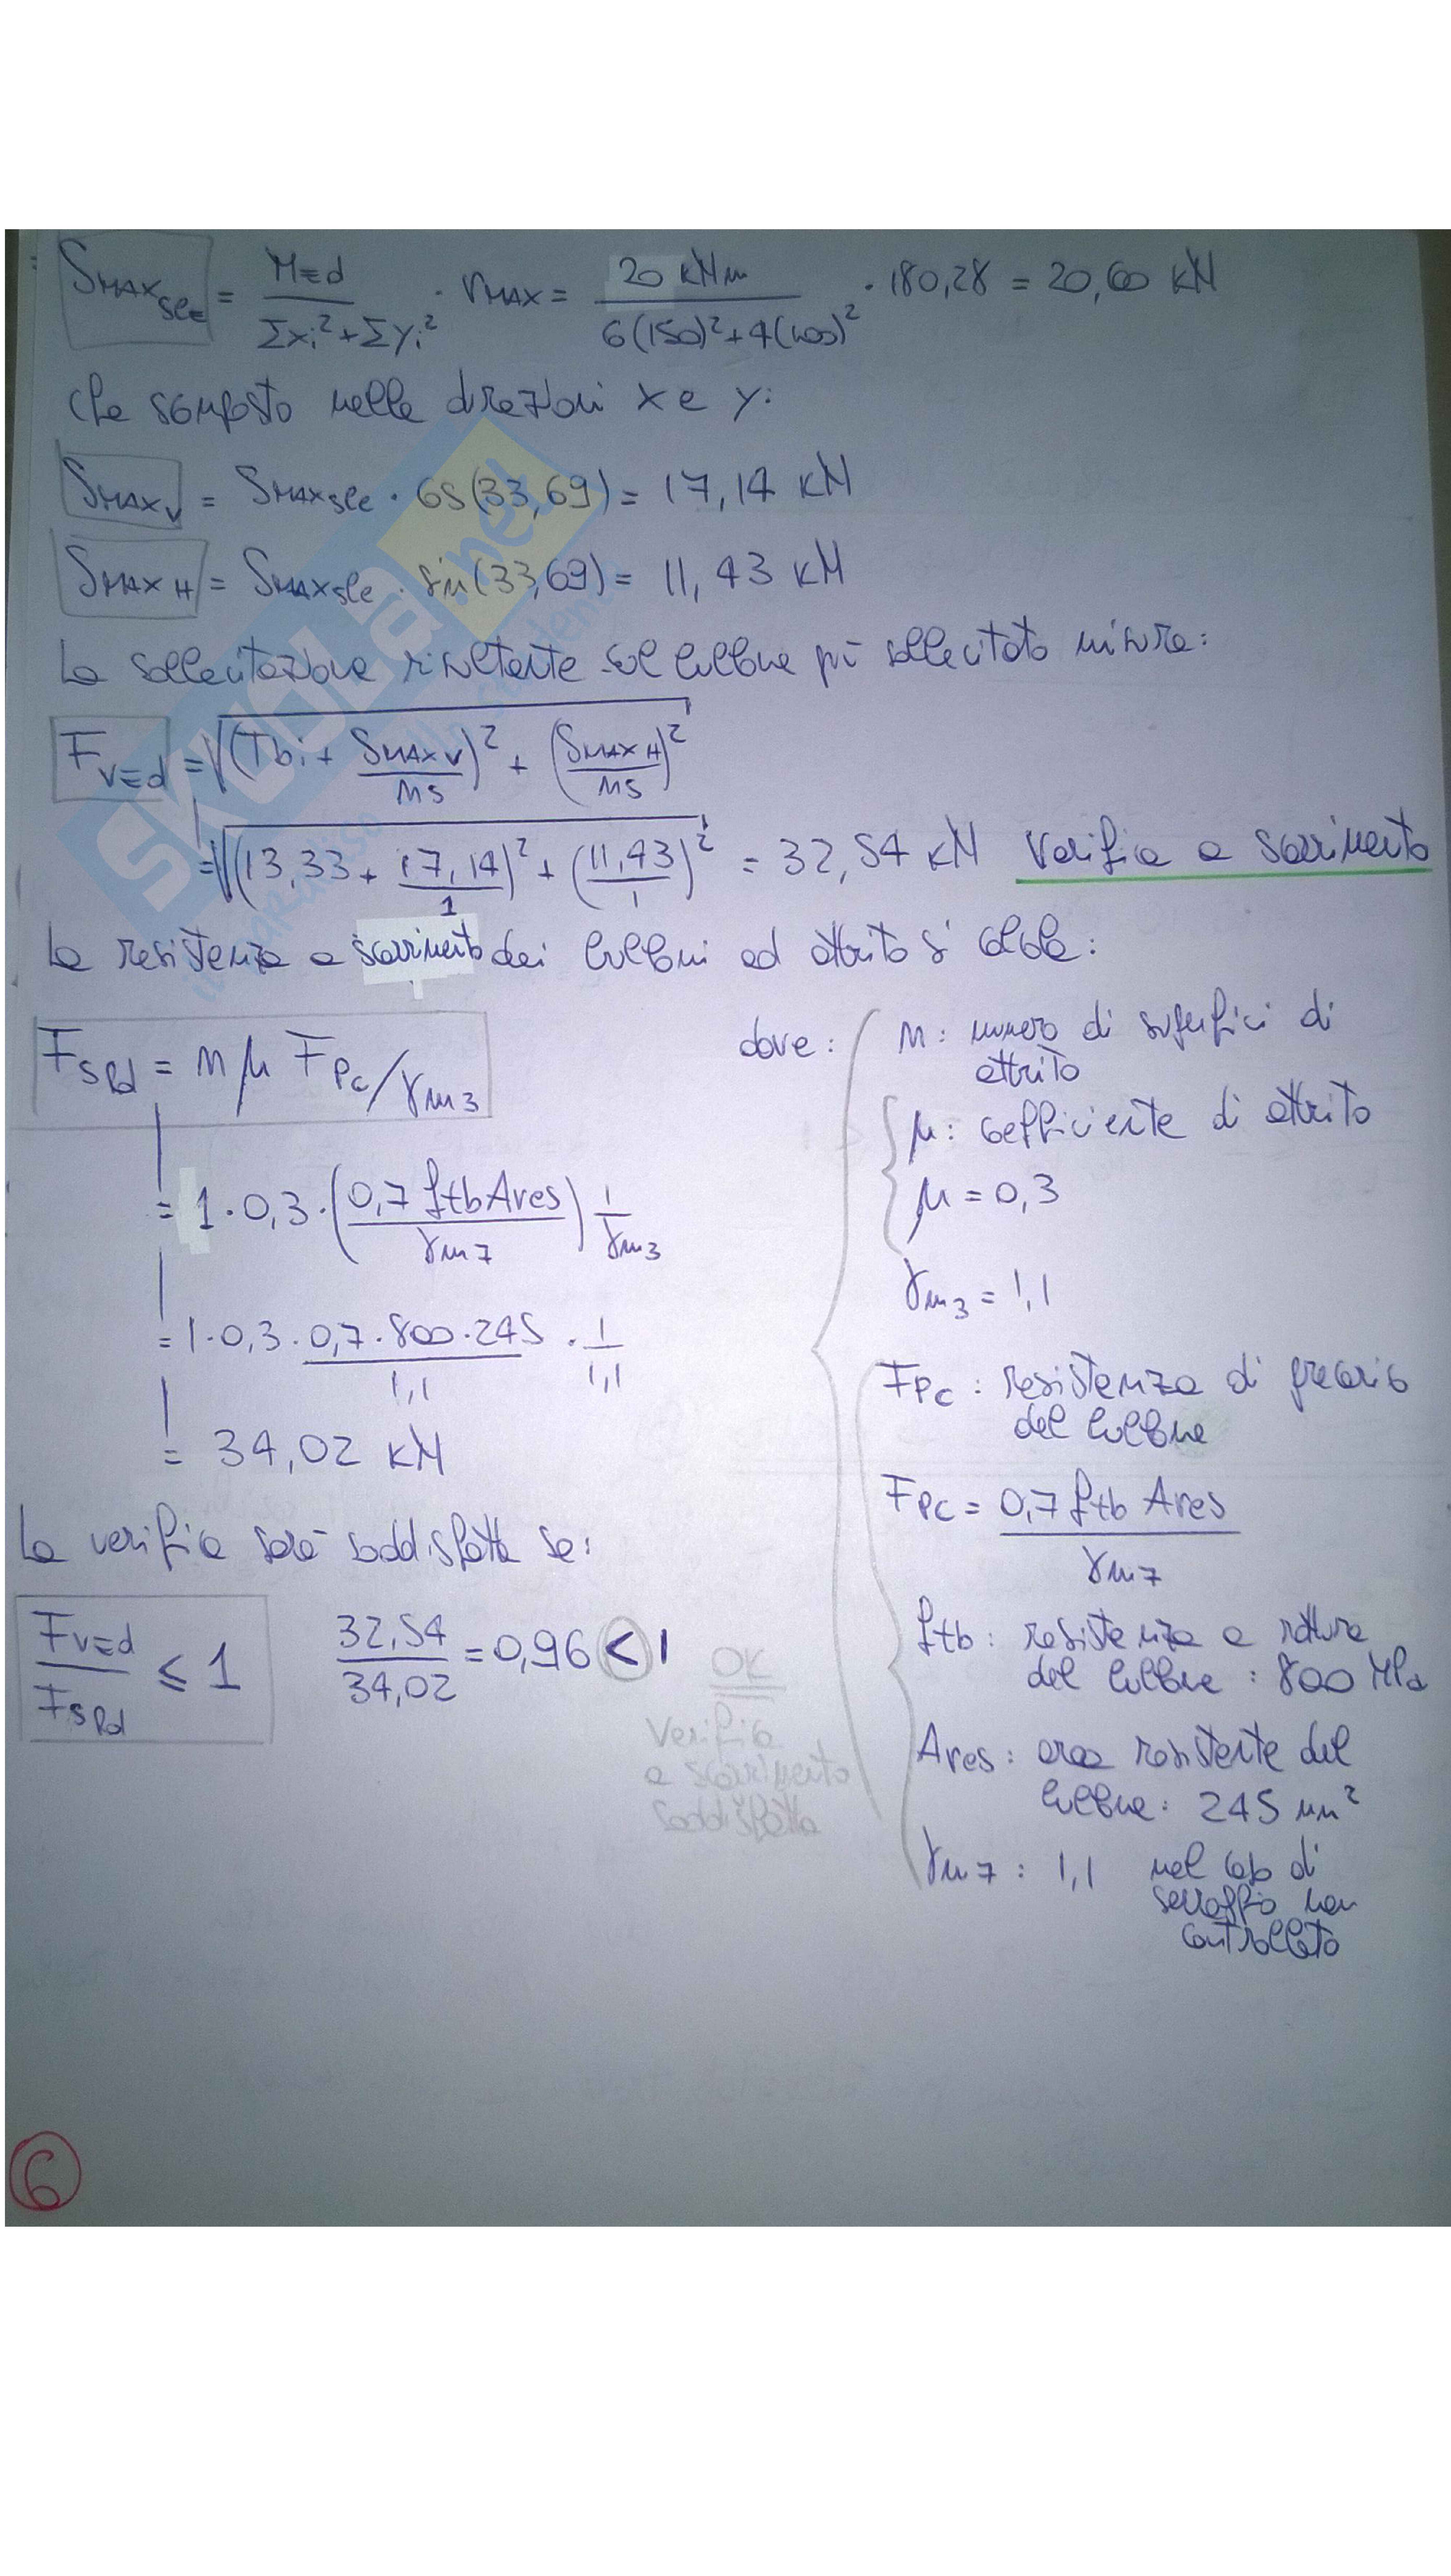 Smax_SLE = MEd / (Σxi² + Σyi²) · rmax = 20 kNm / (6(150)² + 4(100)²) · 180,28 = 20,60 kN
che scomposto nelle direzioni x e y:
Smax_V = Smax_sle · cos(33,69) = 17,14 kN
Smax_H = Smax_sle · sin(33,69) = 11,43 kN
La sollecitazione risultante sul bullone più sollecitato misura:
F_VEd = √((Tbi + Smax_V / ms)² + (Smax_H / ms)²)
= √((13,33 + 17,14 / 1)² + (11,43 / 1)²) = 32,54 kN Verifica a scorrimento
La resistenza a scorrimento dei bulloni ad attrito si calcola:
F_SRd = n μ F_PC / γm3
= 1 · 0,3 · (0,7 ftb Ares / γm7) 1 / γm3
= 1 · 0,3 · 0,7 · 800 · 245 / 1,1 · 1 / 1,1
= 34,02 kN
dove:
n: numero di superfici di
attrito
μ: coefficiente di attrito
μ = 0,3
γm3 = 1,1
F_PC: resistenza di precarico
del bullone
F_PC = 0,7 ftb Ares / γm7
ftb: resistenza a rottura
del bullone: 800 MPa
Ares: area resistente del
bullone: 245 mm²
γm7: 1,1 nel caso di
serraggio non
controllato
La verifica sarà soddisfatta se:
F_VEd / F_SRd ≤ 1 32,54 / 34,02 = 0,96 < 1 OK
Verifica
a scorrimento
soddisfatta
6
SKUOLA.net